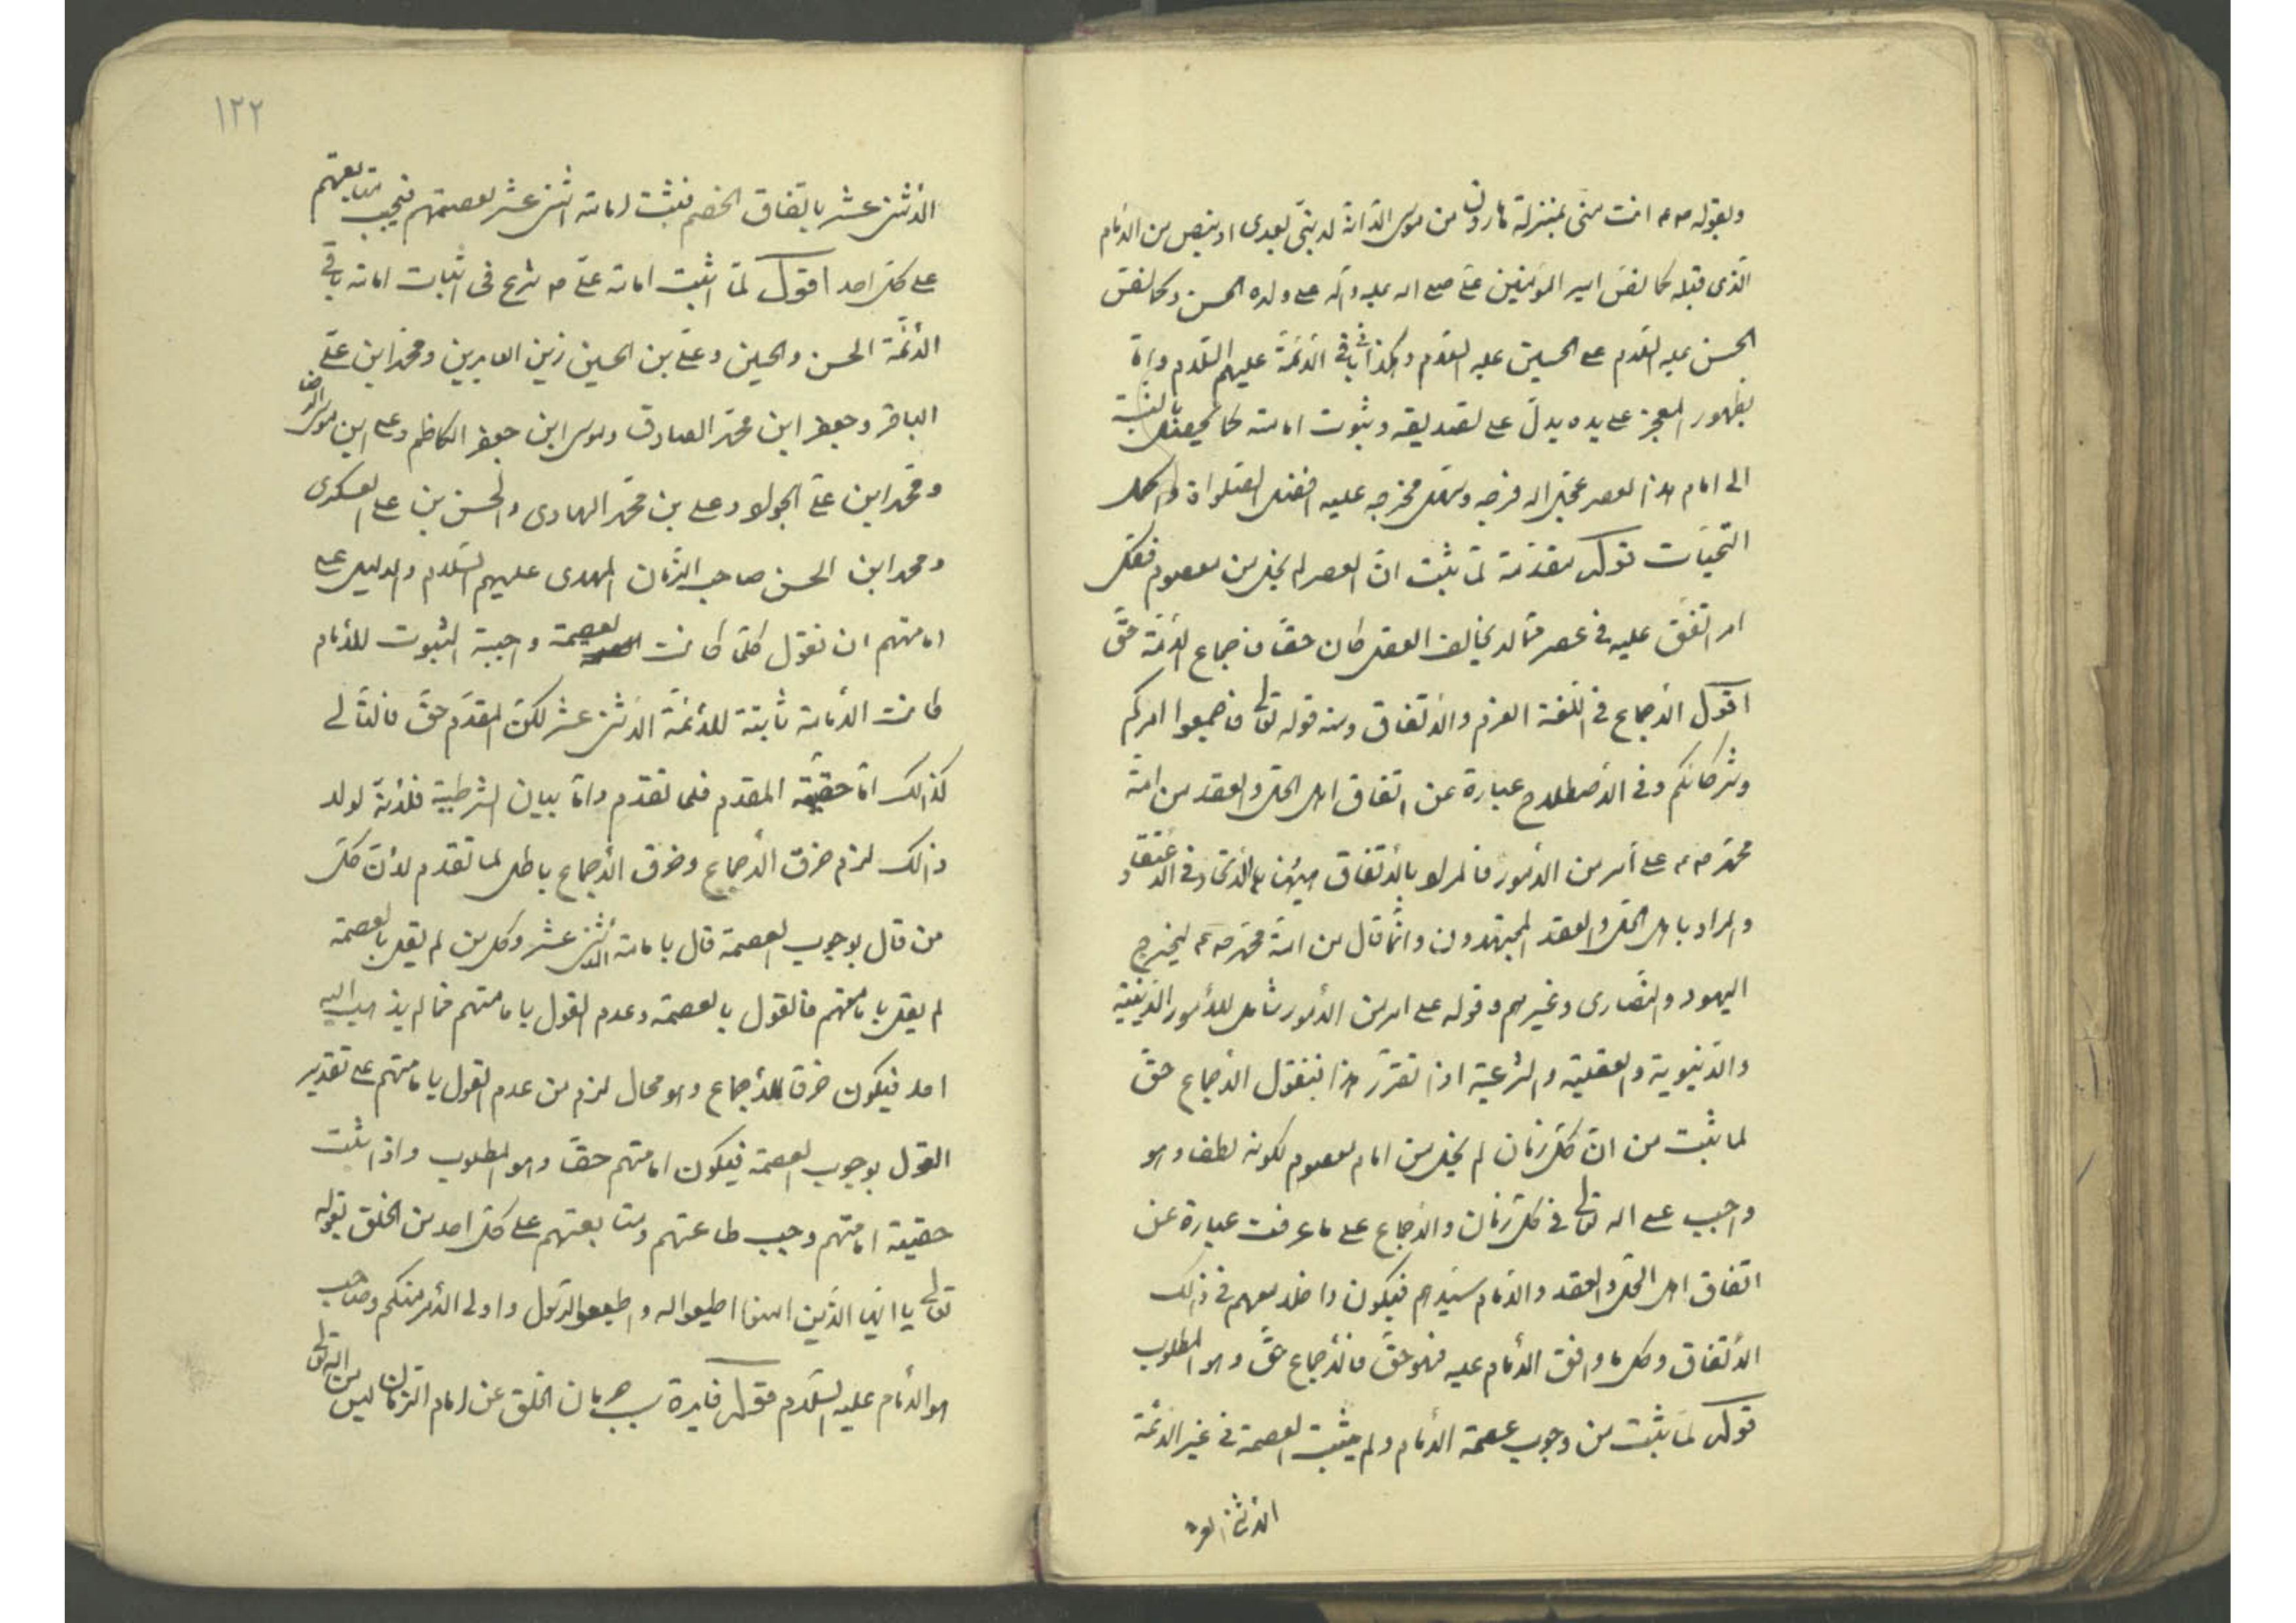 وبقوله ص م انت منى بمنزلة هارون من موسى الا انه لا نبى بعدى او بنص من الامام
الذى قبله كما نص امير المؤمنين على صلى الله عليه وآله على ولده الحسن وكما نص
الحسن عليه السلام على الحسين عليه السلام وهكذا فى باقى الائمة عليهم السلام واما
بظهور المعجز على يده يدل على تصديقه وثبوت امامته كما بالنسبة
الى امام هذا العصر عجل الله فرجه وسهل مخرجه عليه افضل الصلوات واكمل
التحيات قوله مقدمة لما ثبت ان العصر لم يخل من معصوم فكل
امر اتفق عليه فى عصر مما لا يخالف العقل كان حقا فاجماع الائمة حق
اقول الاجماع فى اللغة العزم والاتفاق ومنه قوله تعالى فاجمعوا امركم
وشركائكم وفى الاصطلاح عبارة عن اتفاق اهل الحل والعقد من امة
محمد ص م على أمر من الامور فالمراد بالاتفاق هيهنا الاتحاد فى الاعتقاد
والمراد باهل الحل والعقد المجتهدون وانما قال من امة محمد ص م ليخرج
اليهود والنصارى وغيرهم وقوله على امر من الامور شامل للأمور الدينية
والدنيوية والعقلية والشرعية اذا تقرر هذا فنقول الاجماع حق
لما ثبت من ان كل زمان لم يخل من امام معصوم لكونه لطفا وهو
واجب على الله تعالى فى كل زمان والاجماع على ما عرفت عبارة عن
اتفاق اهل الحل والعقد والامام سيدهم فيكون داخلا معهم فى ذلك
الاتفاق وكل ما وافق الامام عليه فهو حق فالاجماع حق وهو المطلوب
قوله لما ثبت من وجوب عصمة الامام ولم يثبت العصمة فى غير الائمة
الاثنى عشر
١٢٢
الاثنى عشر باتفاق الخصم فثبت امامة اثنى عشر لعصمتهم فيجب متابعتهم
على كل احد اقول لما اثبت امامة على ع م شرع فى اثبات امامة باقى
الائمة الحسن والحسين وعلى بن الحسين زين العابدين ومحمد ابن على
الباقر وجعفر ابن محمد الصادق وموسى ابن جعفر الكاظم وعلى ابن موسى الرضا
ومحمد ابن على الجواد وعلى بن محمد الهادى والحسن بن على العسكرى
ومحمد ابن الحسن صاحب الزمان المهدى عليهم السلام والدليل على
امامتهم ان نقول كلما كانت العصمة واجبة الثبوت للامام
كانت الامامة ثابتة للائمة الاثنى عشر لكن المقدم حق فالتالى
كذالك اما حقية المقدم فلما تقدم واما بيان الشرطية فلانه لولا
ذالك لزم خرق الاجماع وخرق الاجماع باطل لما تقدم لان كل
من قال بوجوب العصمة قال بامامة الاثنى عشر وكل من لم يقل بالعصمة
لم يقل بامامتهم فالقول بالعصمة وعدم القول بامامتهم مما لم يذهب اليه
احد فيكون خرقا للاجماع وهو محال لزم من عدم القول بامامتهم على تقدير
القول بوجوب العصمة فيكون امامتهم حقا وهو المطلوب واذا ثبت
حقيقة امامتهم وجب طاعتهم ومتابعتهم على كل احد من الخلق لقوله
تعالى يا ايها الذين امنوا اطيعوا الله واطيعوا الرسول واولى الامر منكم وصاحب
هو الامام عليه السلام قوله فايدة سبب حرمان الخلق عن امام الزمان ليس من الله تعالى